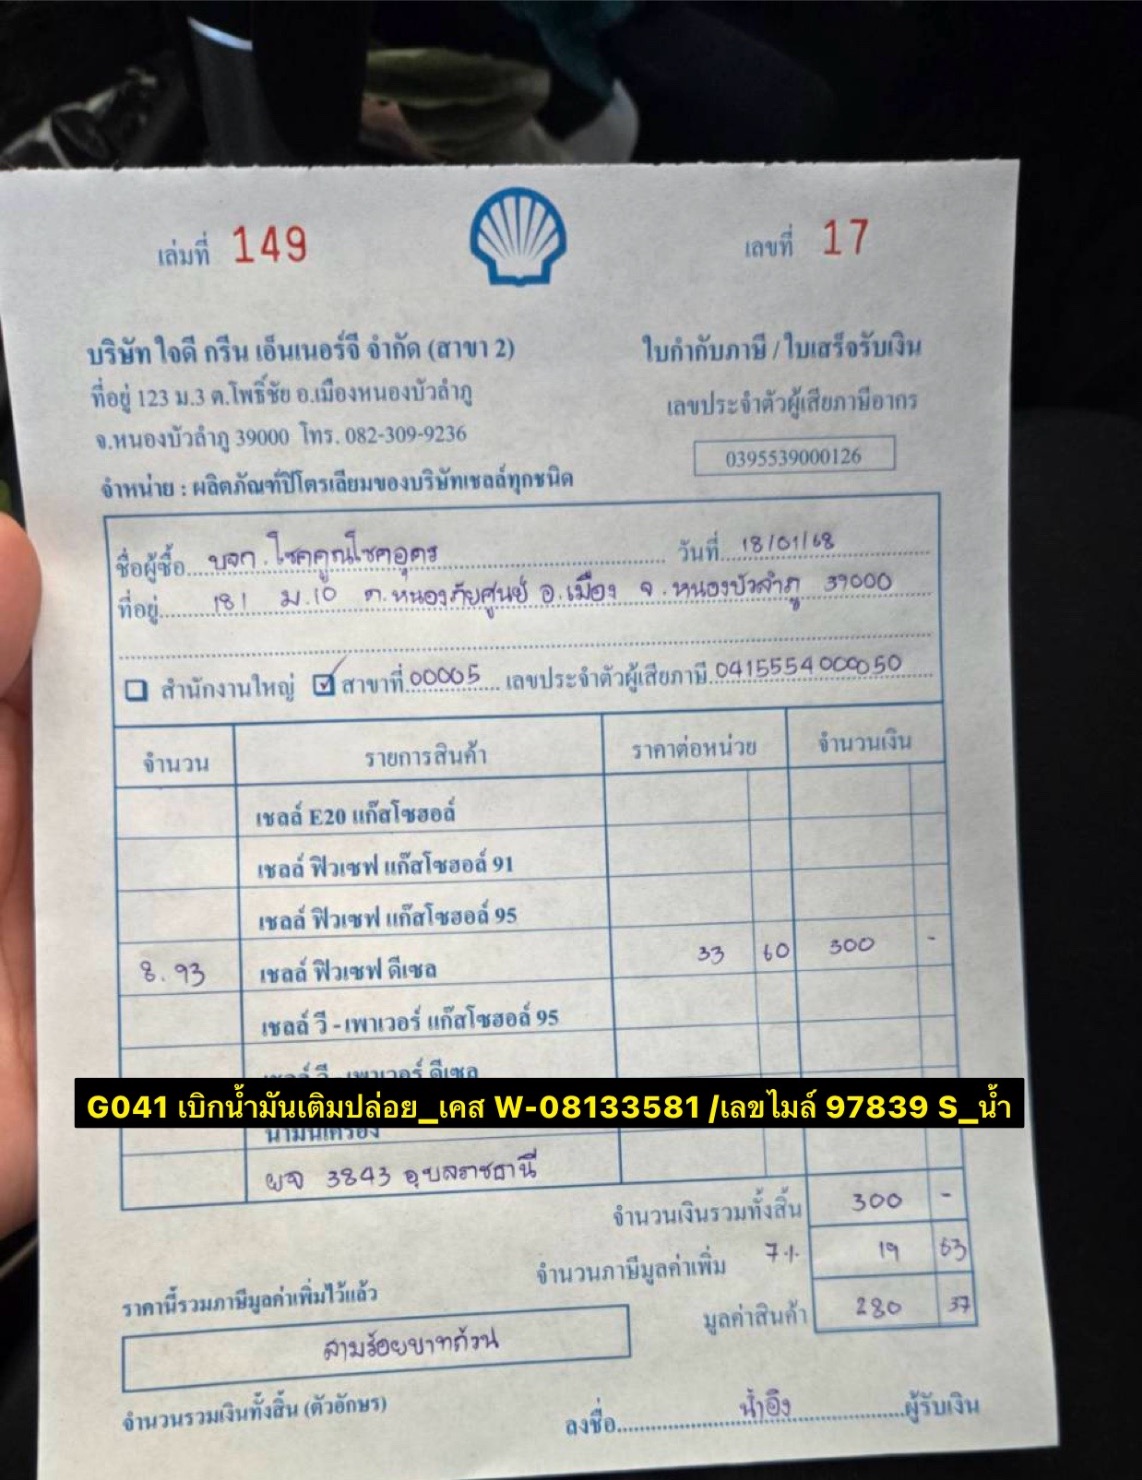 เล่มที่ 149
เลขที่ 17
บริษัท ใจดี กรีน เอ็นเนอร์จี จำกัด (สาขา 2)
ใบกำกับภาษี / ใบเสร็จรับเงิน
ที่อยู่ 123 ม.3 ต.โพธิ์ชัย อ.เมืองหนองบัวลำภู
เลขประจำตัวผู้เสียภาษีอากร
จ.หนองบัวลำภู 39000 โทร. 082-309-9236
0395539000126
จำหน่าย : ผลิตภัณฑ์ปิโตรเลียมของบริษัทเชลล์ทุกชนิด
ชื่อผู้ซื้อ บจก. โชคคูณโชคอุดร วันที่ 18/01/68
ที่อยู่ 181 ม.10 ต.หนองภัยศูนย์ อ.เมือง จ.หนองบัวลำภู 39000
สำนักงานใหญ่ ☑ สาขาที่ 00005 เลขประจำตัวผู้เสียภาษี 0415554000050
จำนวน รายการสินค้า ราคาต่อหน่วย จำนวนเงิน
เชลล์ E20 แก๊สโซฮอล์
เชลล์ ฟิวเซฟ แก๊สโซฮอล์ 91
เชลล์ ฟิวเซฟ แก๊สโซฮอล์ 95
8.93 เชลล์ ฟิวเซฟ ดีเซล 33 60 300 -
เชลล์ วี - เพาเวอร์ แก๊สโซฮอล์ 95
เชลล์ วี - เพาเวอร์ ดีเซล
G041 เบิกน้ำมันเติมปล่อย_เคส W-08133581 /เลขไมล์ 97839 S_น้ำ
น้ำมันเครื่อง
ผจ 3843 อุบลราชธานี
จำนวนเงินรวมทั้งสิ้น 300 -
จำนวนภาษีมูลค่าเพิ่ม 7% 19 63
ราคานี้รวมภาษีมูลค่าเพิ่มไว้แล้ว
มูลค่าสินค้า 280 37
สามร้อยบาทถ้วน
จำนวนรวมเงินทั้งสิ้น (ตัวอักษร)
ลงชื่อ น้ำอิง ผู้รับเงิน